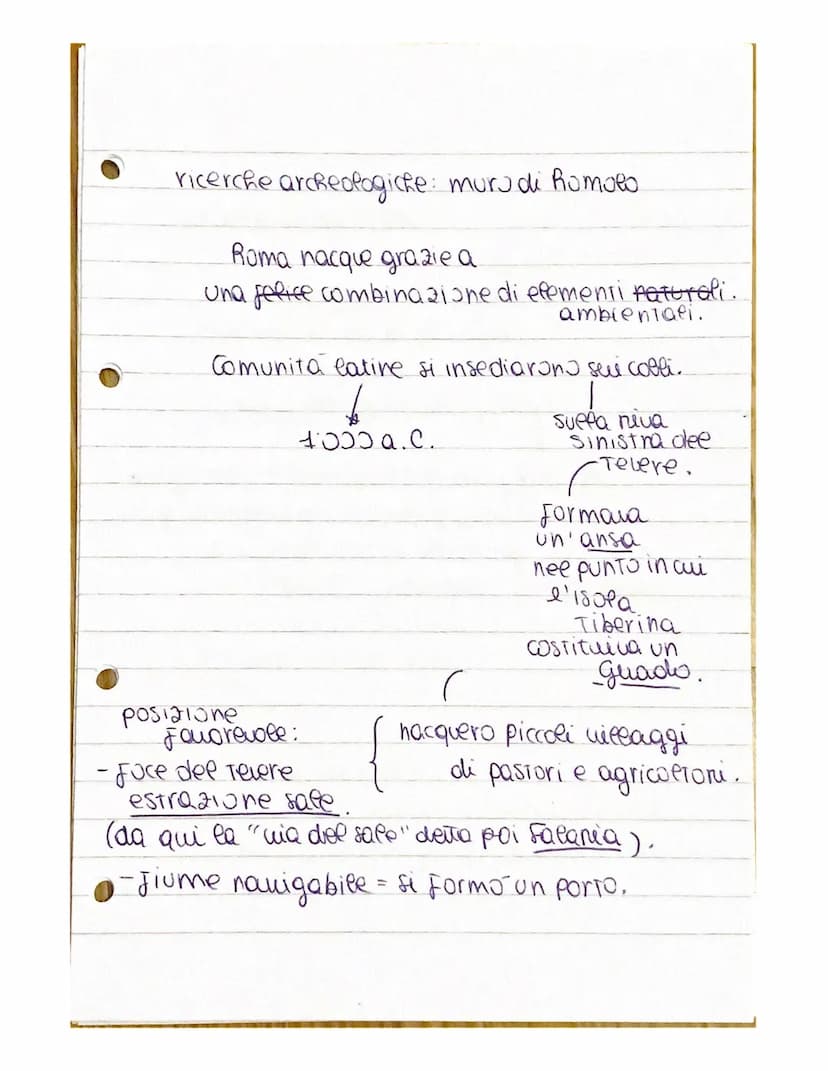 ricerche archeologiche: muro di Romolo
Roma nacque grazie a
una felice combinazione di elementi naturali.
ambientali.
Comunità latine si insediarono sui colli.
1'000 a.C.
sulla riva
sinistra del
Tevere.
formava
un'ansa
nel punto in cui
l'isola
Tiberina
costituiva un
guado.
posizione
favorevole:
- foce del Tevere
estrazione sale
nacquero piccoli villaggi
di pastori e agricoltori.
(da qui la "via del sale" detta poi Salaria).
- fiume navigabile = si formò un porto.